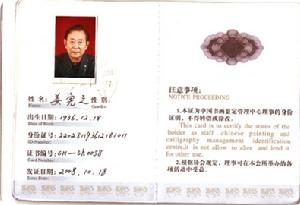 姓名: 姜宪之 性别:
Name Gender
出生日期: 1936.12.18
Date of Birth
身份证号:
ID Number
证书编号:
Card Number
发证日期: 2008.10.18
注意事项:
NOTICE PROCEEDING
1.本证为中国书画鉴定管理中心理事的身份证明,不得转借或涂改。
This card is to certify the status of the holder as staff chinese painting and calligraphy management identification centre,it is not allow to alter and lend it for other use.
2.根据协会规定,理事可在本会所举办的各项活动中受益。